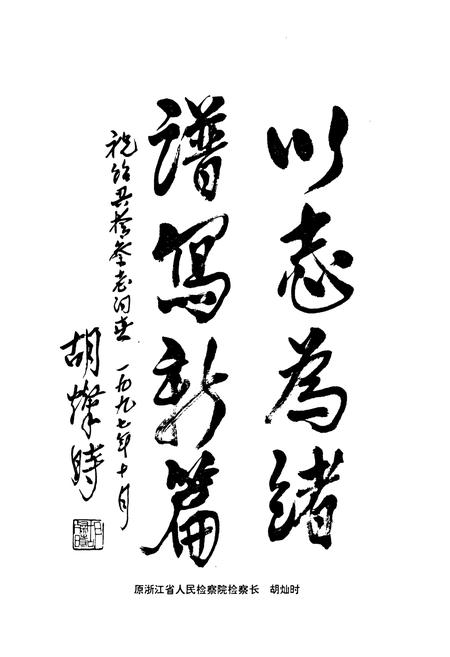 以志為緒
谱寫新篇
祝绍兴检察志问世 一九九七年十月
胡燦時
原浙江省人民检察院检察长 胡灿时